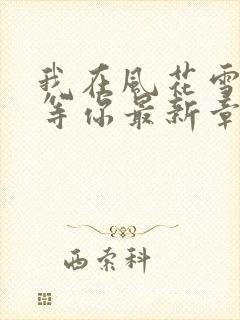 我在風花雪
等你最新章
西索科